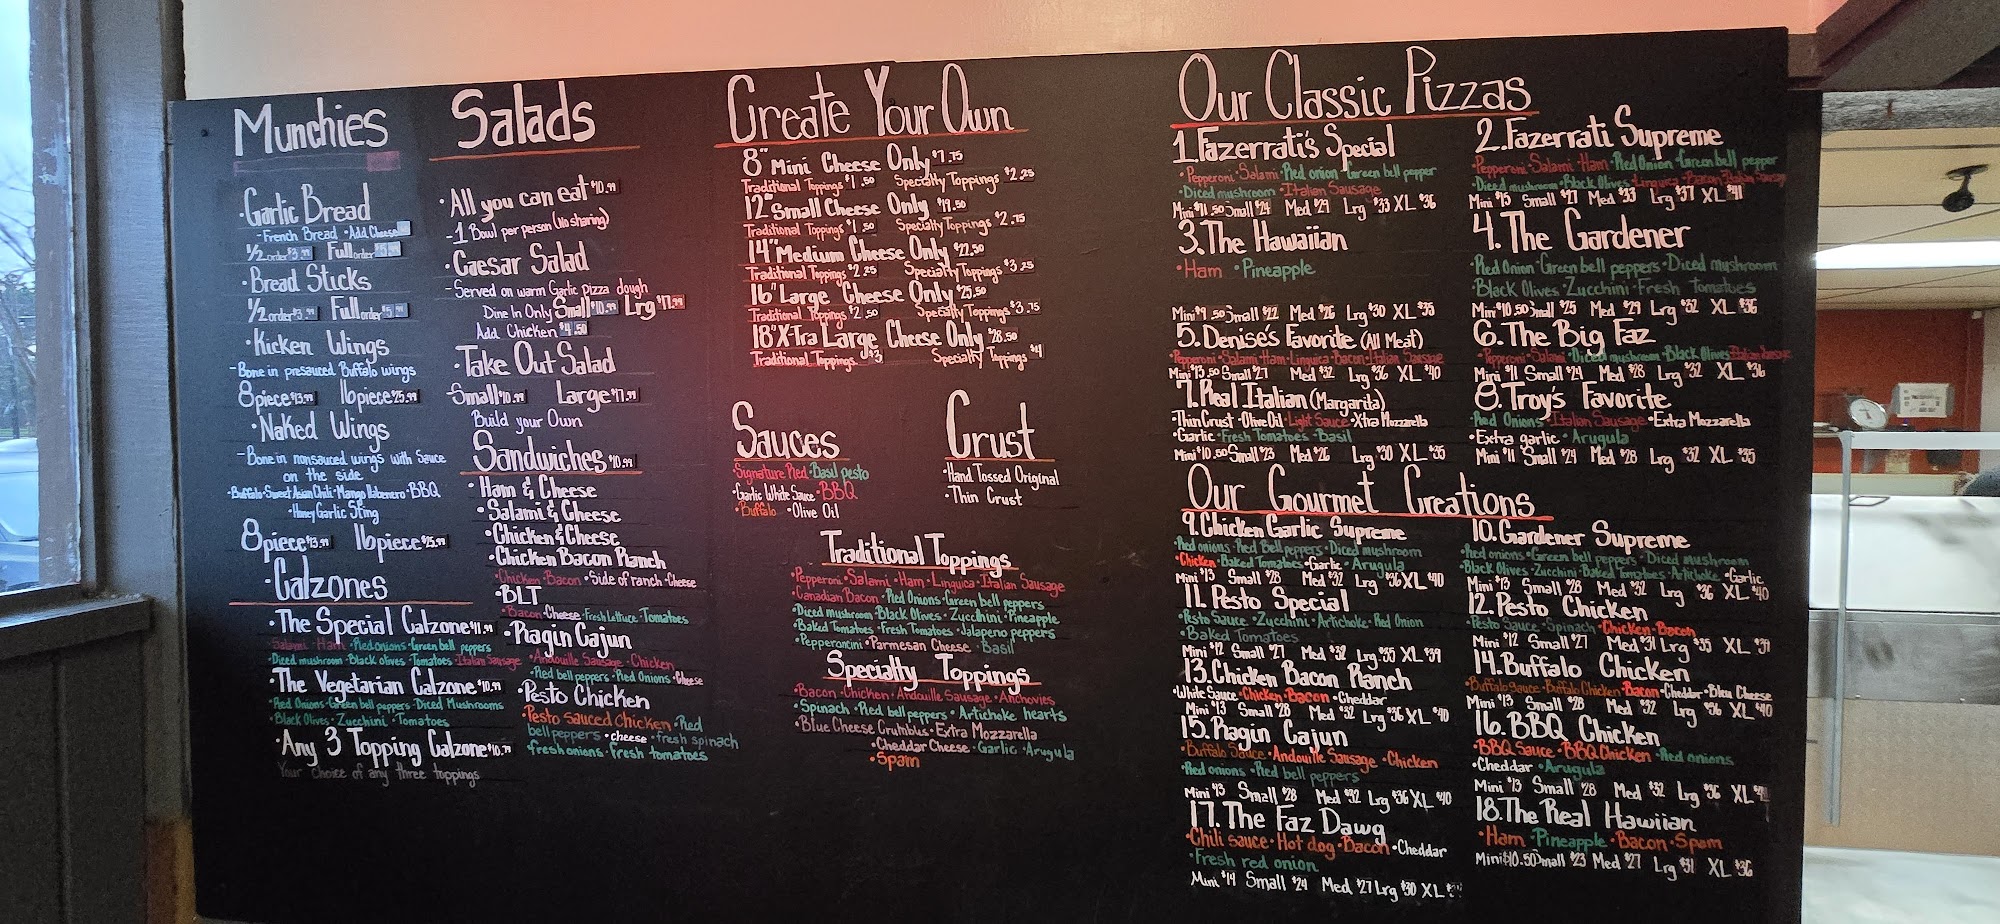 Munchies
·Garlic Bread
-French Bread ·Add Cheese
½ order Full order
·Bread Sticks
½ order Full order
·Kicken Wings
-Bone in presauced Buffalo wings
8piece $13.99 16piece $25.99
·Naked Wings
-Bone in nonsauced wings with Sauce
on the side
·Buffalo·Sweet Asian Chili·Mango Habenero·BBQ
·Honey Garlic Sting
8piece $13.99 16piece $25.99
·Calzones
·The Special Calzone $11.99
Salami·Ham·Red onions·Green bell peppers
Diced mushroom·Black olives·Tomatoes·Italian Sausage
·The Vegetarian Calzone $10.99
·Red Onions·Green bell peppers·Diced Mushrooms
·Black Olives·Zucchini·Tomatoes
·Any 3 Topping Calzone
Your choice of any three toppings
Salads
·All you can eat $10.99
-1 Bowl per person (No sharing)
·Caesar Salad
-Served on warm Garlic pizza dough
Dine In Only Small $10.99 Lrg $17.99
Add Chicken $4.50
·Take Out Salad
Small $10.99 Large $17.99
Build your Own
Sandwiches $10.99
·Ham & Cheese
·Salami & Cheese
·Chicken & Cheese
·Chicken Bacon Ranch
·Chicken·Bacon·Side of ranch·Cheese
·BLT
·Bacon·Cheese·Fresh Lettuce·Tomatoes
·Ragin Cajun
·Andouille Sausage·Chicken
·Red bell peppers·Red Onions·Cheese
·Pesto Chicken
·Pesto sauced chicken·Red
bell peppers·cheese·fresh spinach
·fresh onions·fresh tomatoes
Create Your Own
8" Mini Cheese Only $7.75
Traditional Toppings $1.50 Specialty Toppings $2.25
12" Small Cheese Only $19.50
Traditional Toppings $1.50 Specialty Toppings $2.75
14" Medium Cheese Only $22.50
Traditional Toppings $2.25 Specialty Toppings $3.25
16" Large Cheese Only $25.50
Traditional Toppings $2.50 Specialty Toppings $3.75
18" X-tra Large Cheese Only $28.50
Traditional Toppings $3 Specialty Toppings $4
Sauces
·Signature Red·Basil pesto
·Garlic White Sauce·BBQ
·Buffalo ·Olive Oil
Crust
·Hand Tossed Original
·Thin Crust
Traditional Toppings
·Pepperoni·Salami·Ham·Linguica·Italian Sausage
·Canadian Bacon·Red Onions·Green bell peppers
·Diced mushroom·Black Olives·Zucchini·Pineapple
·Baked Tomatoes·Fresh Tomatoes·Jalapeno peppers
·Pepperoncini·Parmesan Cheese·Basil
Specialty Toppings
·Bacon·Chicken·Andouille Sausage·Anchovies
·Spinach·Red bell peppers·Artichoke hearts
·Blue Cheese Crumbles·Extra Mozzarella
·Cheddar Cheese·Garlic·Arugula
·Spam
Our Classic Pizzas
1.Fazerrati's Special
·Pepperoni·Salami·Red onion·Green bell pepper
·Diced mushroom·Italian Sausage
Mini $11.50 Small $24 Med $29 Lrg $33 XL $36
2.Fazerrati Supreme
·Pepperoni·Salami·Ham·Red Onion·Green bell pepper
·Diced mushroom·Black Olives·Linguica·Bacon·Italian Sausage
Mini $15 Small $27 Med $33 Lrg $37 XL $41
3.The Hawaiian
·Ham ·Pineapple
Mini $9.50 Small $22 Med $26 Lrg $30 XL $35
4.The Gardener
·Red Onion·Green bell peppers·Diced mushroom
·Black Olives·Zucchini·Fresh Tomatoes
Mini $10.50 Small $25 Med $29 Lrg $32 XL $36
5.Denise's Favorite (All Meat)
·Pepperoni·Salami·Ham·Linguica·Bacon·Italian Sausage
Mini $13.50 Small $27 Med $32 Lrg $36 XL $40
6.The Big Faz
·Pepperoni·Salami·Diced mushroom·Black Olives·Italian Sausage
Mini $11 Small $24 Med $28 Lrg $32 XL $36
7.Real Italian (Margarita)
·Thin Crust·Olive Oil·Light Sauce·Xtra Mozzarella
·Garlic·Fresh Tomatoes·Basil
Mini $10.50 Small $23 Med $26 Lrg $30 XL $35
8.Troy's Favorite
·Red Onions·Italian Sausage·Extra Mozzarella
·Extra garlic·Arugula
Mini $11 Small $24 Med $28 Lrg $32 XL $35
Our Gourmet Creations
9.Chicken Garlic Supreme
·Red onions·Red Bell peppers·Diced mushroom
·Chicken·Baked Tomatoes·Garlic·Arugula
Mini $13 Small $28 Med $32 Lrg $36 XL $40
10.Gardener Supreme
·Red onions·Green bell peppers·Diced mushroom
·Black Olives·Zucchini·Baked Tomatoes·Artichoke·Garlic
Mini $13 Small $28 Med $32 Lrg $36 XL $40
11.Pesto Special
·Pesto Sauce·Zucchini·Artichoke·Red Onion
·Baked Tomatoes
Mini $12 Small $27 Med $32 Lrg $35 XL $39
12.Pesto Chicken
·Pesto Sauce·Spinach·Chicken·Bacon
Mini $12 Small $27 Med $31 Lrg $35 XL $39
13.Chicken Bacon Ranch
·White Sauce·Chicken·Bacon·Cheddar
Mini $13 Small $28 Med $32 Lrg $36 XL $40
14.Buffalo Chicken
·Buffalo Sauce·Buffalo Chicken·Bacon·Cheddar·Bleu Cheese
Mini $13 Small $28 Med $32 Lrg $36 XL $40
15.Ragin Cajun
·Buffalo Sauce·Andouille Sausage·Chicken
·Red onions·Red bell peppers
Mini $13 Small $28 Med $32 Lrg $36 XL $40
16.BBQ Chicken
·BBQ Sauce·BBQ Chicken·Red onions
·Cheddar·Arugula
Mini $13 Small $28 Med $32 Lrg $36 XL
17.The Faz Dawg
·Chili sauce·Hot dog·Bacon·Cheddar
·Fresh red onion
Mini $14 Small $24 Med $27 Lrg $30 XL
18.The Real Hawiian
·Ham·Pineapple·Bacon·Spam
Mini $10.50 Small $23 Med $27 Lrg $31 XL $36